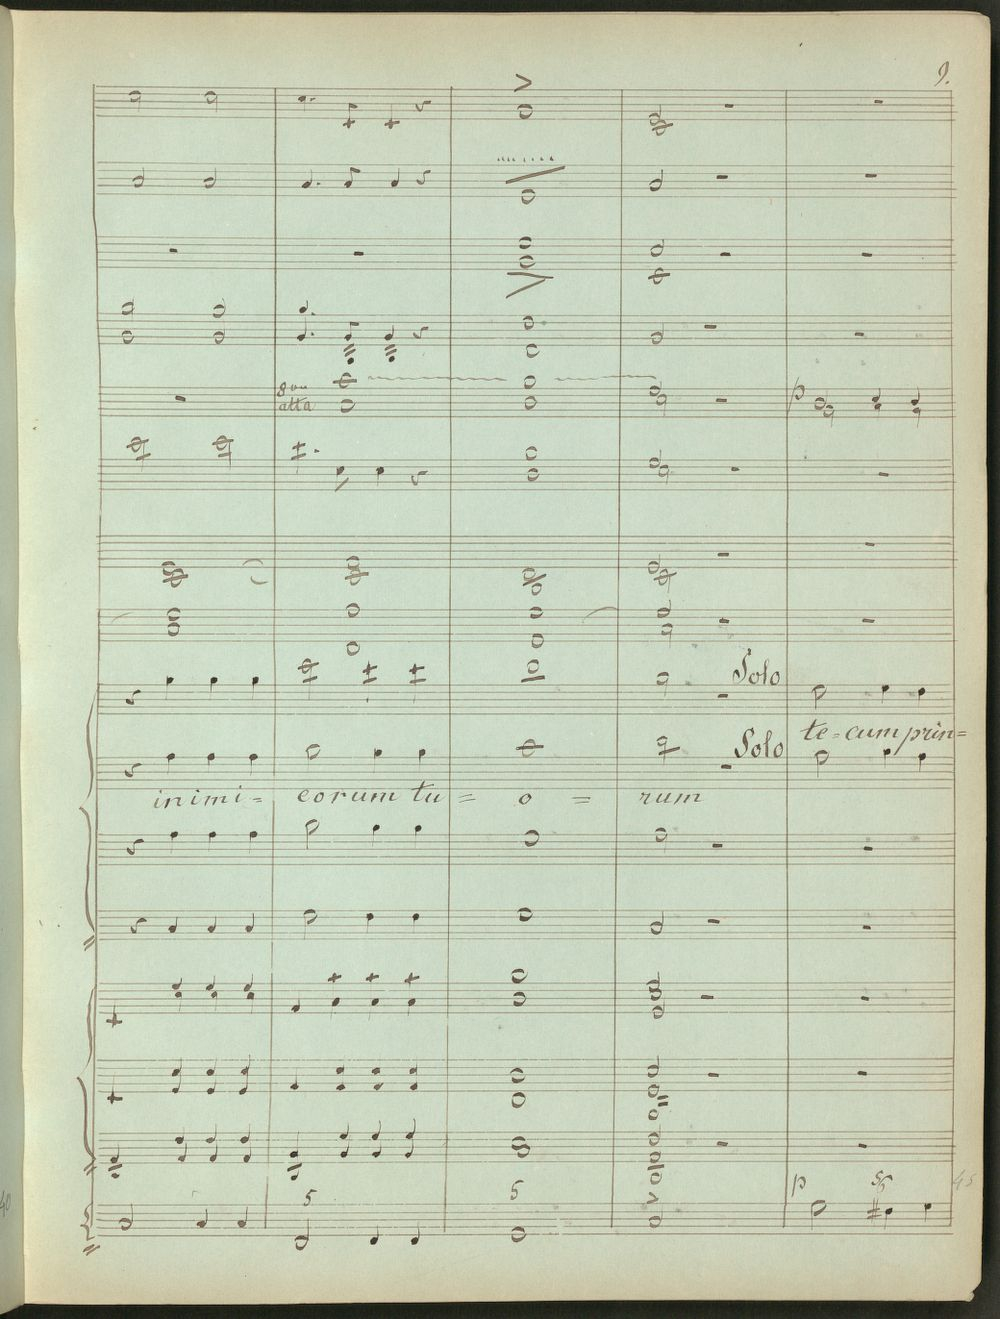 9.
8va
alta
p
Solo
Solo
te=cum prin=
inimi= corum tu = o = rum
5
5
p
56
45
40